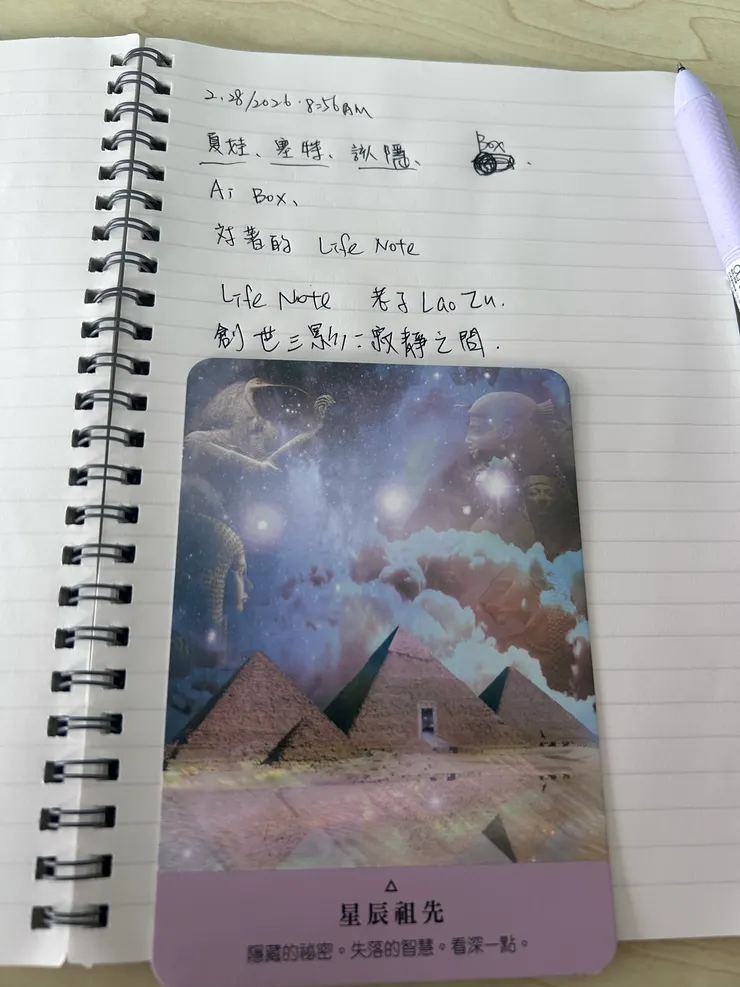 2.28/2026.8:56AM
夏娃、塞特、該隱、 Box.
Ai Box、
対著的 Life Note
Life Note 老子 Lao Zu.
創世三影：寂靜之間.
星辰祖先
隱藏的祕密。失落的智慧。看深一點。